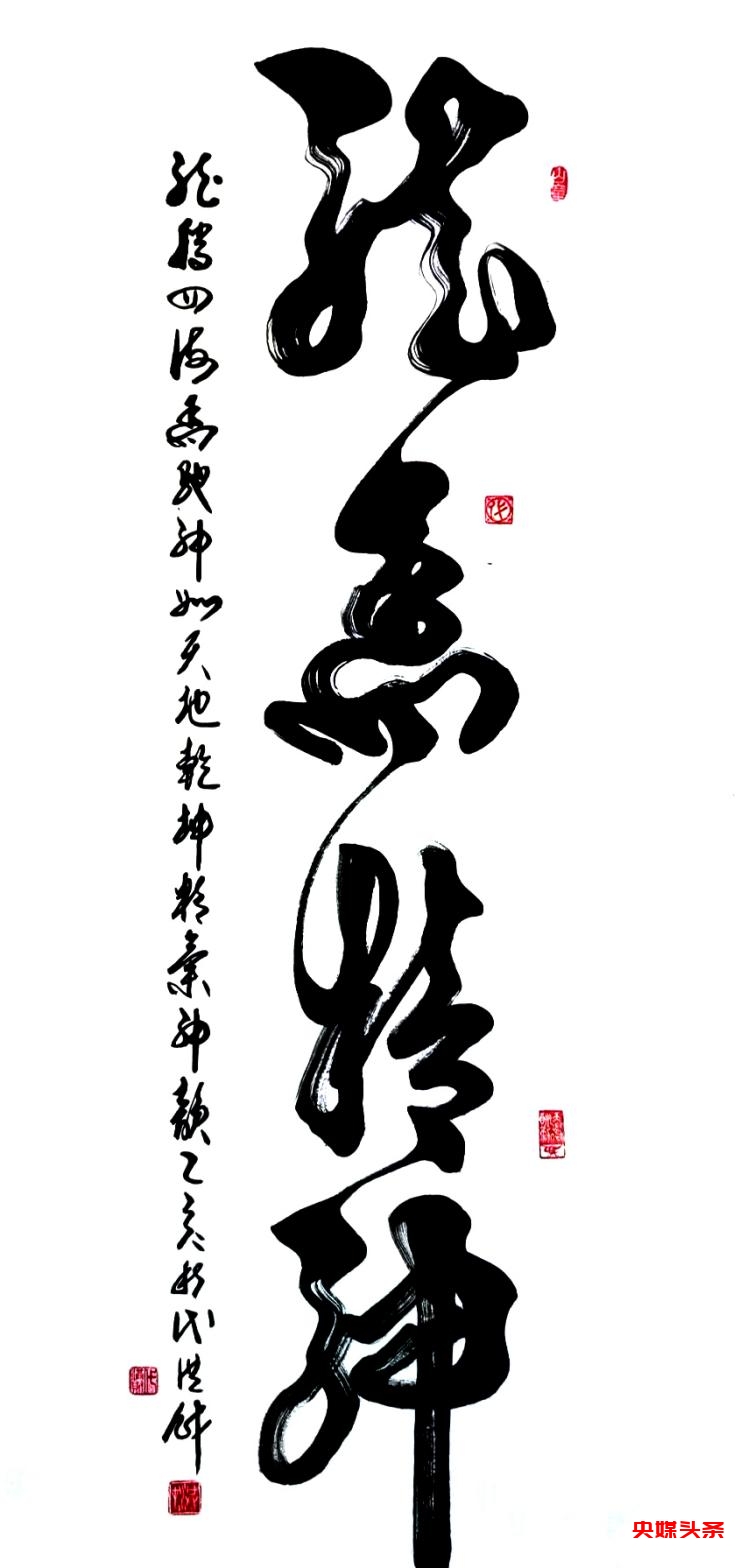 龍馬精神
龍騰四海馬馳神州天地乾坤精氣神韻亥秋洪
央媒头条